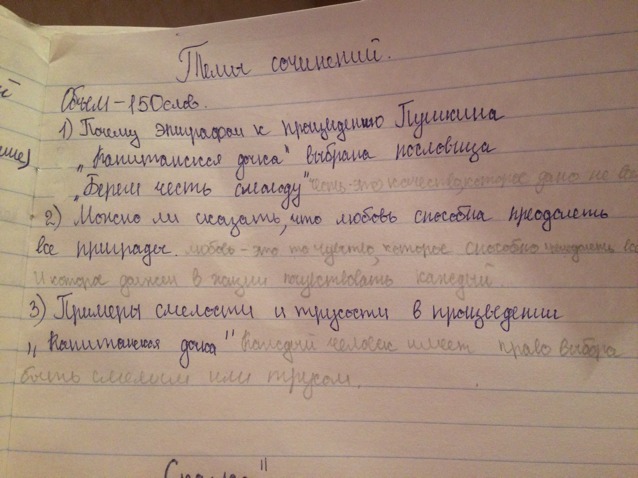 Темы сочинений.
Объем - 150 слов.
1) Почему эпиграфом к произведению Пушкина
"Капитанская дочка" выбрана пословица
"Береги честь смолоду" честь - это качество, которое дано не
2) Можно ли сказать, что любовь способна преодолеть
все преграды. любовь - это то чувство, которое способно преодолеть все
и которое должен в жизни почувствовать каждый.
3) Примеры смелости и трусости в произведении
"Капитанская дочка" каждый человек имеет право выбора
быть смелым или трусом.